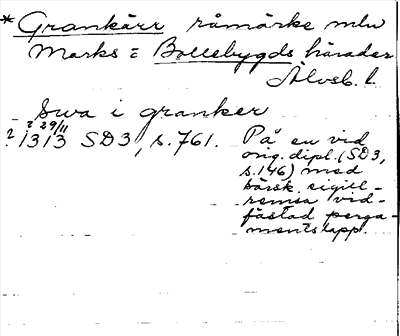 * Grankärr råmärke mln
Marks = Bollebygds härader
Älvsb. l.
Swa i granker
? 1313 ? 29/11 SD3, s. 761.
På en vid
orig. dipl. (SD3,
s. 146) med
särsk. sigill-
remsa vid-
fästad perga-
mentslapp.